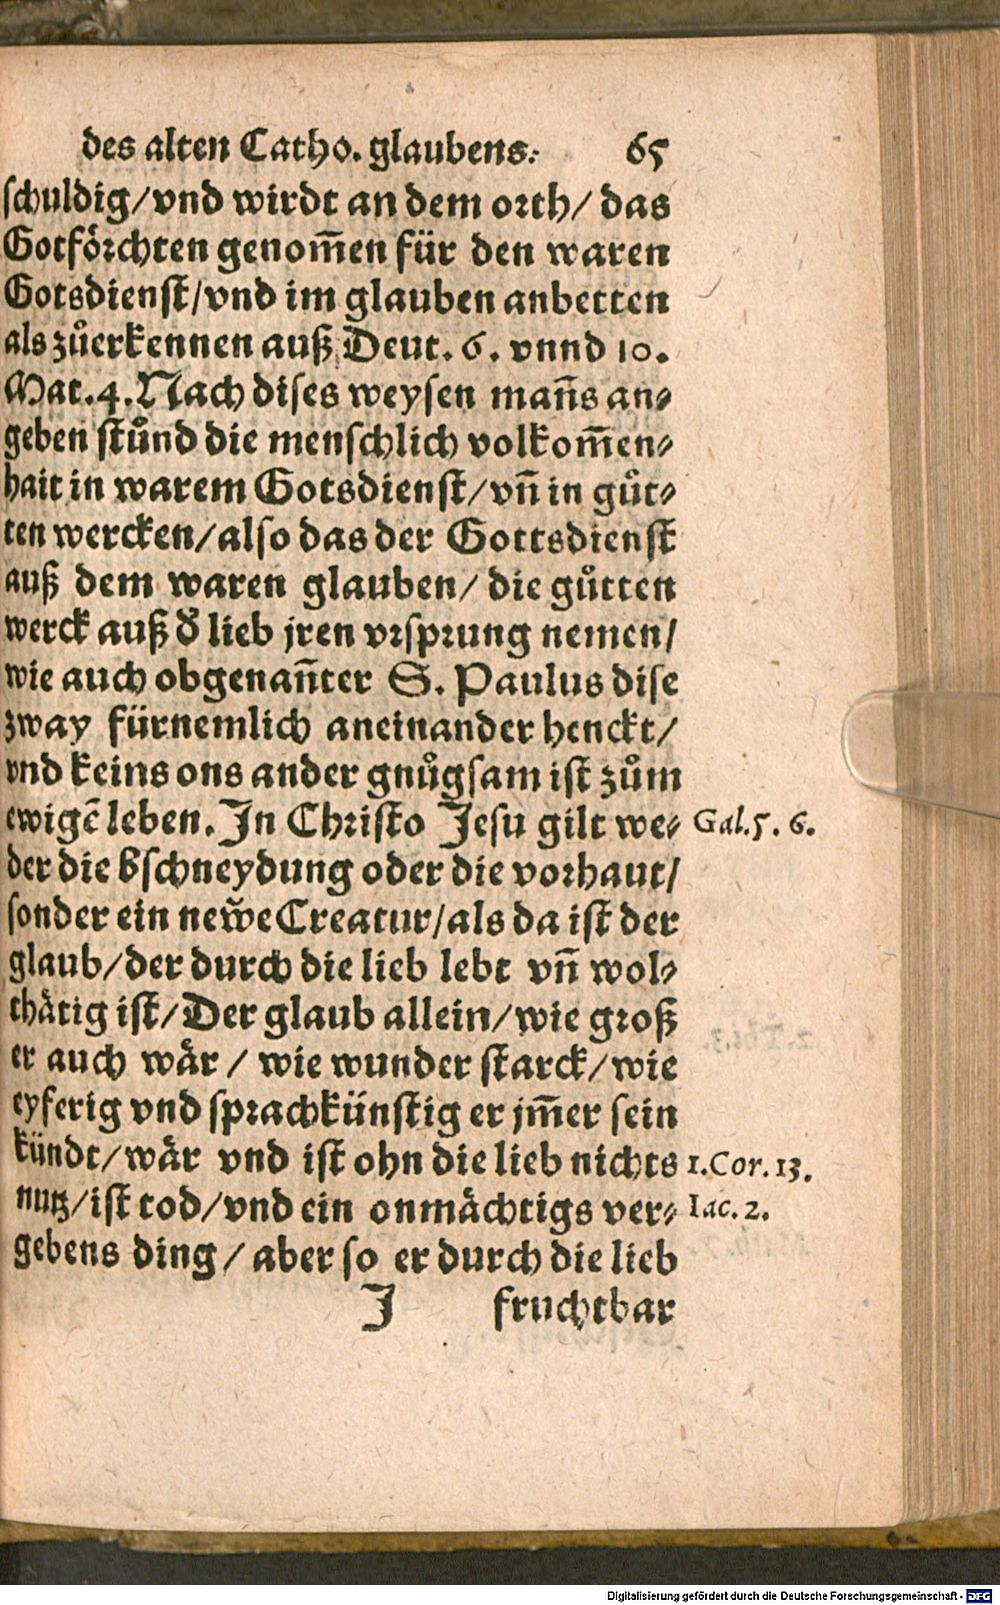 des alten Catho. glaubens. 65
schuldig/vnd wirdt an dem orth/ das
Gotförchten genom̄en für den waren
Gotsdienst/vnd im glauben anbetten
als zůerkennen auß Deut. 6. vnnd 10.
Mat.4. Nach dises weysen man̄s an-
geben stůnd die menschlich volkom̄en-
hait in warem Gotsdienst/vn̄ in gůt-
ten wercken/also das der Gottsdienst
auß dem waren glauben/ die gůtten
werck auß d̕ lieb jren vrsprung nemen/
wie auch obgenan̄ter S. Paulus dise
zway fürnemlich aneinander henckt/
vnd keins ons ander gnůgsam ist zům
ewigē leben. In Christo Jesu gilt we- Gal.5. 6.
der die bschneydung oder die vorhaut/
sonder ein new̆e Creatur/als da ist der
glaub/der durch die lieb lebt vn̄ wol-
thätig ist/Der glaub allein/wie groß
er auch wär / wie wunder starck/wie
eyferig vnd sprachkünstig er jm̄er sein
kündt/wär vnd ist ohn die lieb nichts 1.Cor.13.
nutz/ist tod/vnd ein onmächtigs ver- Iac.2.
gebens ding / aber so er durch die lieb
I fruchtbar
Digitalisierung gefördert durch die Deutsche Forschungsgemeinschaft - DFG